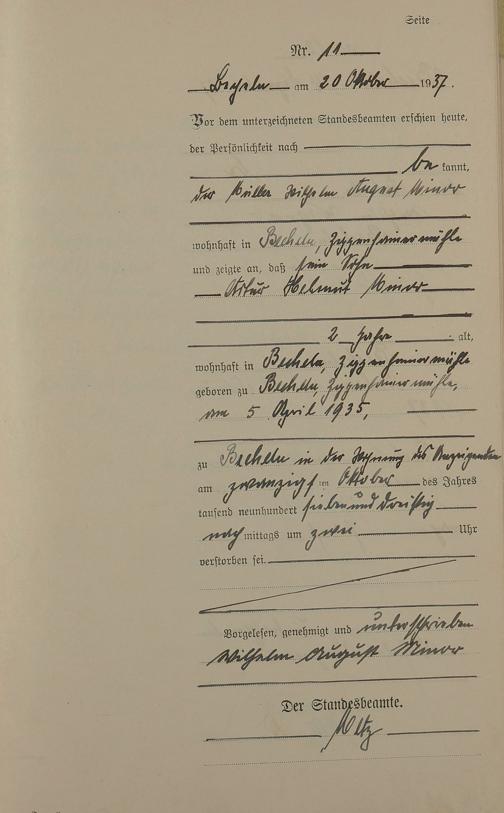 Seite
Nr. 11
Becheln am 20 Oktober 1937.
Vor dem unterzeichneten Standesbeamten erschien heute,
der Persönlichkeit nach
be kannt,
der Müller Wilhelm August Minor
wohnhaft in Becheln, Zizzenhainermühle
und zeigte an, daß sein Sohn
Artur Helmut Minor
2 Jahre alt,
wohnhaft in Becheln, Zizzenhainermühle
geboren zu Becheln, Zizzenhainermühle,
am 5 April 1935,
zu Becheln in der Wohnung des Anzeigenden
am zwanzigst en Oktober des Jahres
tausend neunhundert sieben und dreißig
nach mittags um zwei Uhr
verstorben sei.
Vorgelesen, genehmigt und unterschrieben
Wilhelm August Minor
Der Standesbeamte.